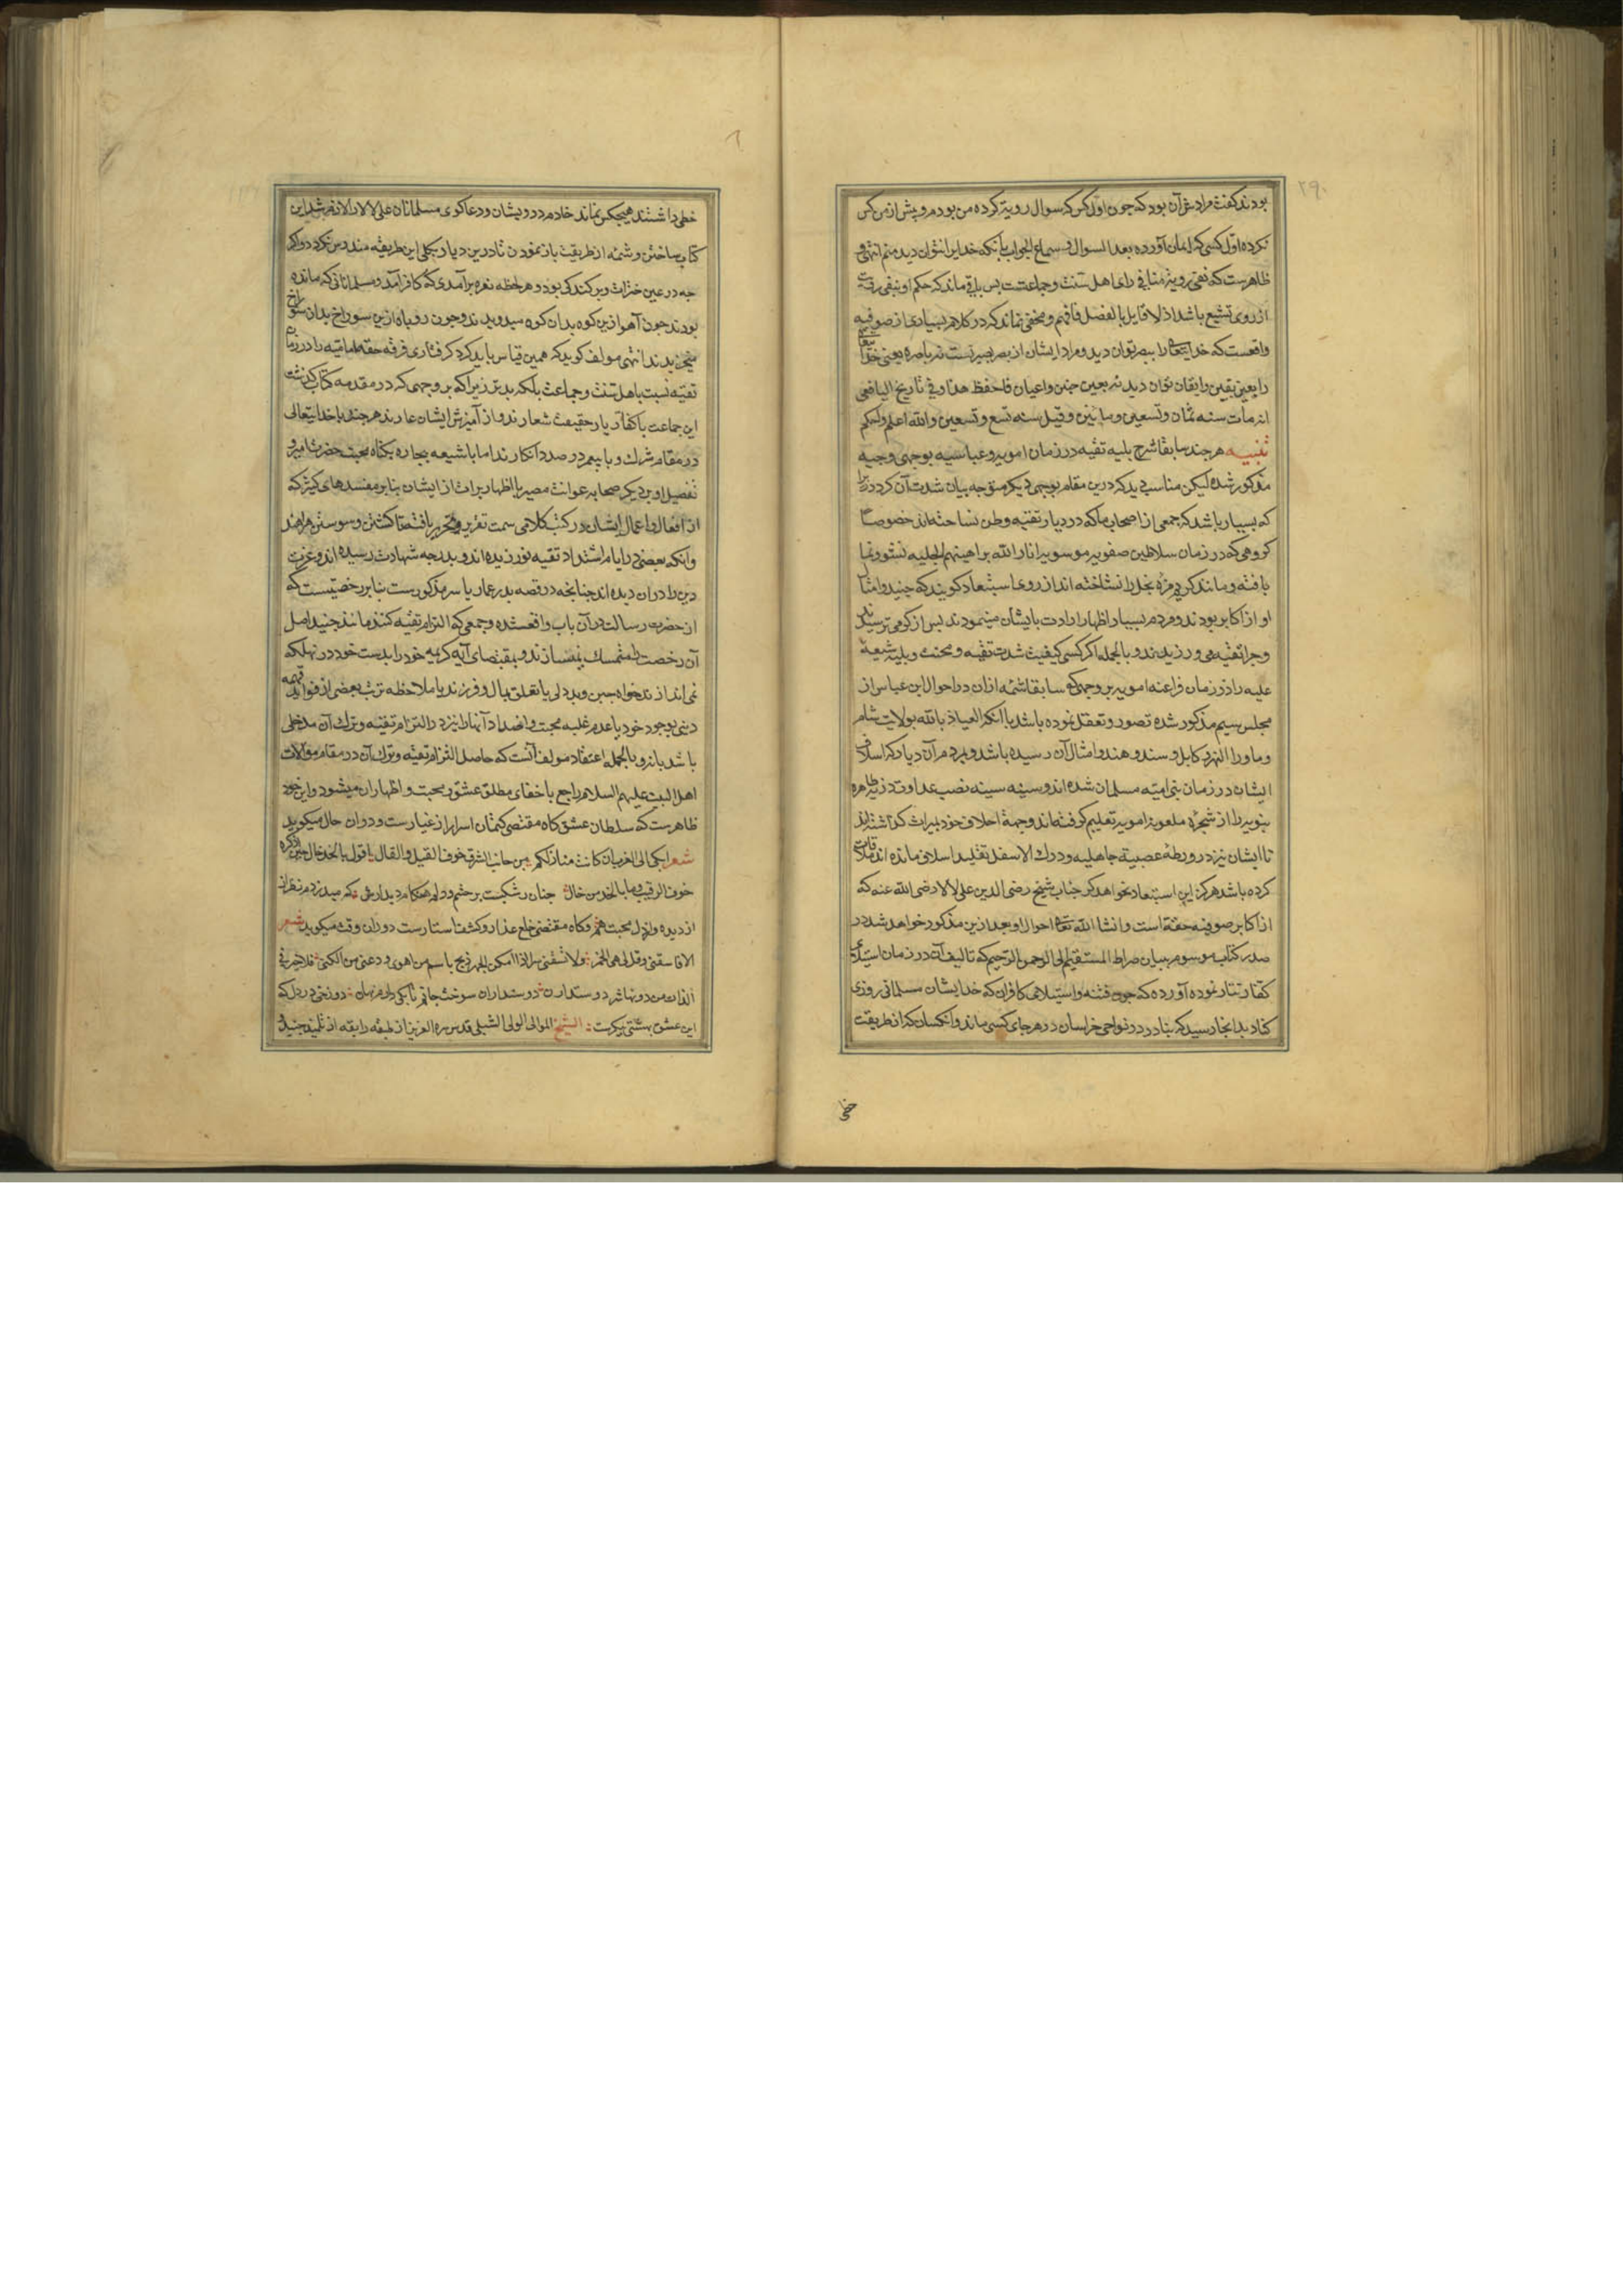 ۲۹۰
بودند گفت مراد من آن بود که چون اول کس که سوال رویة کرده من بودم و پیش از من کس
نکرده اول کسی که ایمان آورده بعد السوال و سماع الجواب بآنکه خدایرا نتوان دید منم انتهی و
ظاهرست که نفی رویة منافی رای اهل سنت و جماعتست پس باقی ماند که حکم او بنفی رویت
از روی تشیع باشد اذ لا قایل بالفصل فافهم و مخفی نماند که در کلام بسیاری از صوفیه
واقعست که خدایتعالی را ببصر توان دید و مراد ایشان از بصر بصیرتست نه باصره یعنی خدایتعالی
را بعین یقین و ایقان توان دید نه بعین جبین و اعیان فاحفظ هذا و فی تاریخ الیافعی
انه مات سنه ثمان و تسعین و مایتین و قیل سنه تسع و تسعین والله اعلم و احکم
تنبیه هر چند سابقا شرح بلیه تقیه در زمان امویه و عباسیه بوجهی وجیه
مذکور شده لیکن مناسب دید که درین مقام بوجهی دیگر متوجه بیان شدت آن گردد زیرا
که بسیار باشد که جمعی از اصحاب ما که در دیار تقیه وطن نساخته‌اند خصوصا
گروهی که در زمان سلاطین صفویه موسویه انار الله براهینهم الجلیه نشو و نما
یافته و مانند کرم مزه بخل را نشناخته اند از روی استبعاد گویند که جنید و امثال
او از اکابر بودند و مردم بسیار اظهار ارادت بایشان مینمودند پس از که می ترسیدند
و چرا تقیه می ورزیدند و بالجمله اگر کسی کیفیت شدت تقیه و محنت و بلیه شیعهٔ
علیه را در زمان فراعنه امویه بر وجهی که سابقا شمه ازان در احوال ابن عباس از
مجلس سیم مذکور شده تصور و تعقل نموده باشد یا آنکه العیاذ بالله بولایت شام
و ماورا النهر و کابل و سند و هند و امثال آن رسیده باشد و مردم آن دیار که اسلاف
ایشان در زمان بنی امیه مسلمان شده اند و سینه سینه نصب عداوت ذریه طاهره
نبویه را از شجرهٔ ملعونه امویه تعلیم گرفته‌اند و جهة اخلاف خود میراث گذاشته‌اند
تا ایشان نیز در ورطهٔ عصبیة جاهلیه و درک الاسفل تقلید اسلاف مانده اند ملاقات
کرده باشد هرگز این استبعاد نخواهد کرد جناب شیخ رضی الدین علی لالا رضی الله عنه که
از اکابر صوفیه حقه است و انشا الله تعالی احوال او بعد ازین مذکور خواهد شد در
صدر کتاب موسوم ببیان صراط المستقیم الی الرحمن الرحیم که تالیف آن در زمان استیلای
کفار تتار نموده آورده که چون فتنه و استیلای کافران که خد ایشان مسلمانی روزی
کناد بدانجا رسید که بنادر در نواحی خراسان در هر جای کسی ماند و آنکسان که از طریقت
خطی
خطی داشتند هیچکس نماند خادم درویشان و دعاگوی مسلمانان علی لالا را لازم شد این
کتاب ساختن و شمه از طریقت باز نمودن تا درین دیار بکلی این طریقه مندرس نگردد و اگر
چه در عین خراب و برکندگی بود و هر لحظه نعره برآمدی که کافر آمد و مسلمانانی که مانده
بودند چون آهو ازین کوه بدان کوه میدویدند و چون روباه ازین سوراخ بدان سوراخ
میخزیدند انتهی مولف گوید که همین قیاس باید کرد گرفتاری فرقه حقه امامیه را در زمان
تقیه نسبت باهل سنت و جماعت بلکه بدتر زیرا که بر وجهی که در مقدمه کتاب گذشت
این جماعت با کفار یار حقیقت شعارند و از آمیزش ایشان عار ندارند هر چند با خدایتعالی
در مقام شرک و با پیغمبر در صدد انکارند اما با شیعه بیچاره بگناه محبت حضرت امیر و
تفضیل او بر دیگر صحابه عوانت مصر یا اظهار برات از ایشان بنابر مفسدهای کثیر که
از افعال و اعمال ایشان در کتب کلامی سمت تقریر و تحریر یافته تا کشتن و سوختن همراهند
و آنکه بعضی در ایام اشتداد تقیه نورزیده اند و بدرجه شهادت رسیده اند و عزت
دین را دران دیده اند چنانچه در قصه پدر عمار یاسر مذکورست بنابر رخصتیست که
از حضرت رسالت در آن باب واقع شده و جمعی که التزام تقیه کنند مانند جنید اصل
آن رخصت را متمسک نمیسازند و بمقتضای آیه کریمه خود را بدست خود در تهلکه
نمی اندازند خواه جبن و بددلی یا تعلق بمال و فرزند یا ملاحظه ترتب بعضی از فواید مهمه
دینی بوجود خود یا عدم غلبه محبت و اضداد آنها را نیز در التزام تقیه و ترک آن مدخلی
باشد یا نه و بالجمله اعتقاد مولف آنست که حاصل التزام تقیه و ترک آن در مقام موالات
اهل البیت علیهم السلام راجع باخفای مطلق عشق و محبت و اظهار ان میشود و این خود
ظاهرست که سلطان عشق گاه مقتضی کتمان اسرار از غیارست و دران حال میگوید
شعر ابکی الی الغرب ان کانت منازلکم من جانب الشرق خوف القیل و القال یا اقول بالخد خال حین اذکره
خوف الرقیب و ما بالخد من خال چنان رشکیست بر چشم و دلم هنگام دیدارش که میدزدم نظر از
از دیده و از دل محبت هم و گاه مقتضی خلع عذار و کشف استارست دران وقت میگوید شعر
الا فاسقنی و قل لی هی الخمر ولا تسقنی سرا اذا امکن الجهر فبح باسم من اهوی و دعنی من الکنی فلا خیر فی
الذات من دونها ستر دوستداران دوستداران سوخت جانم تا بکی دارم نهان دوزخی در دل که
این عشق بهشتی پیکرست الشیخ الموالی الولی الشبلی قدس سره العزیز از طبقه رابعه از تلمیذ جنید و